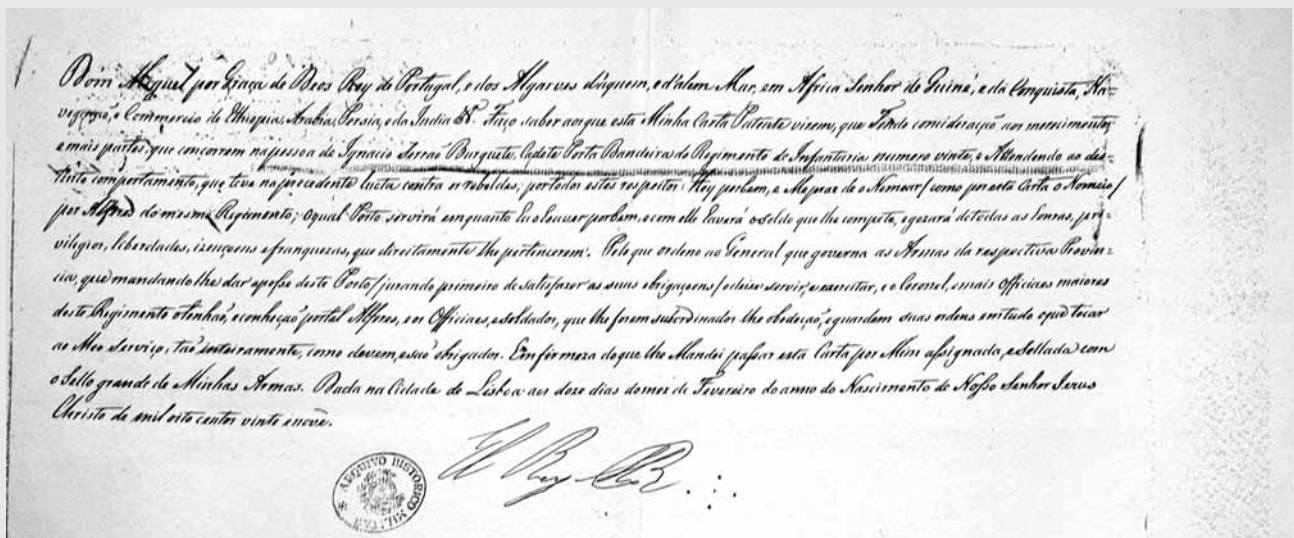 Dom Miguel por Graça de Deos Rey de Portugal, e dos Algarves d'aquem, e d'alem Mar, em Africa Senhor de Guiné, e da Conquista, Na=
vegação, e Commercio de Ethiopia, Arabia, Persia, e da India &ª. Faço saber aos que esta Minha Carta Patente virem, que Tendo concideração aos merecimentos,
e mais partes, que concorrem na pessoa de Ignacio Ferrão Burguete, Cadete Porta Bandeira do Regimento de Infantaria numero vinte, e Attendendo ao des=
tincto comportamento, que teve na precedente lucta contra os rebeldes; por todos estes respeitos: Hey por bem, e Me praz de o Nomear / como por esta Carta o Nomeio /
por Alferes do mesmo Regimento; o qual Posto servirá em quanto Eu o houver por bem, e com elle haverá o soldo que lhe compete, e gozará de todas as honras, pri=
vilegios, liberdades, izençoens e franquezas, que direitamente lhe pertencerem. Pelo que ordeno ao General que governa as Armas da respectiva Provin=
cia, que mandando-lhe dar a posse deste Posto / jurando primeiro de satisfazer as suas obrigaçoens / o deixe servir, e exercitar, e o Coronel, e mais Officiaes maiores
deste Regimento o tenhão, e conheção por tal Alferes, e os Officiaes, e soldados, que lhe forem subordinados lhe obedeção, e guardem suas ordens em tudo o que tocar
ao Meo Serviço, tão inteiramente, como devem, e são obrigados. Em firmeza do que lhe Mandei passar esta Carta por Mim assignada, e Sellada com
o Sello grande de Minhas Armas. Dada na Cidade de Lisboa aos doze dias do mez de Fevereiro do anno do Nascimento de Nosso Senhor Jesus
Christo de mil oito centos vinte e nove.
El Rey
ARQUIVO HISTORICO MILITAR